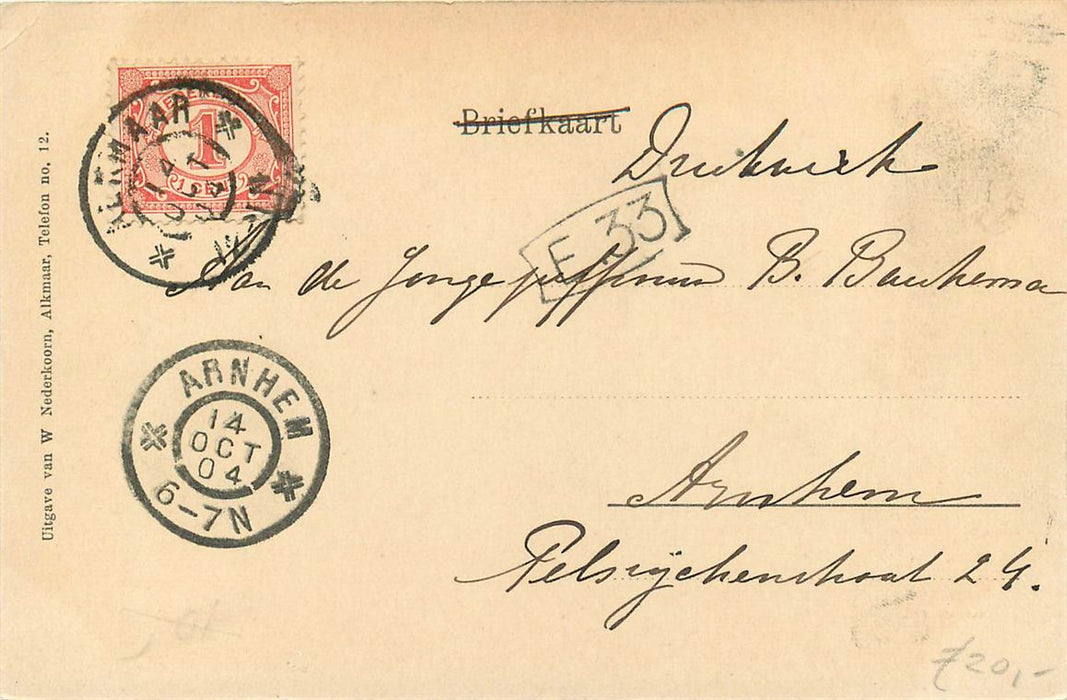 Uitgave van W Nederkoorn, Alkmaar, Telefon no. 12.
1
1 CENT
ALKMAAR
14
OCT
04
Briefkaart
Drukwerk
E 33
Aan de Jongejuffrouw B. Baukema
ARNHEM
14
OCT
04
6-7N
Arnhem
Pelsrijckenstraat 24.
ƒ20,-